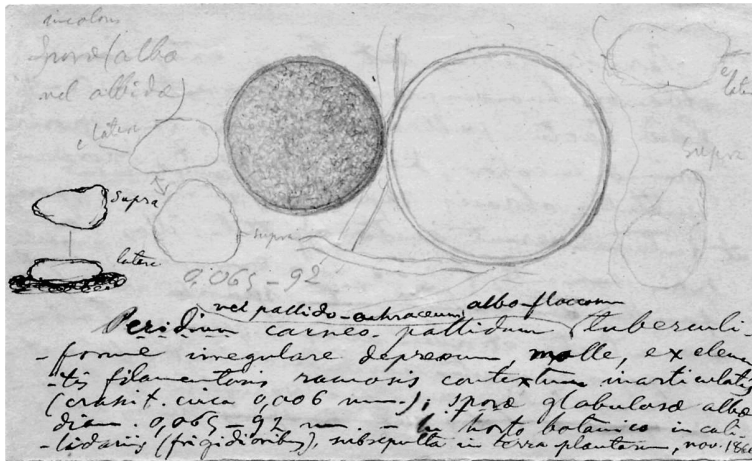 incoloris
Sporae (albae
vel albidae)
e latere
supra
latere
supra
e
latere
supra
0,065 – 92
vel pallido-ochraceum, albo-floccosum
Peridium carneo-pallidum tuberculi-
-forme irregulare depressum, molle, ex elemen-
-tis filamentosis ramosis contextum inarticulatis
(crassit. circa 0,006 mm.); sporae globulosae albae
diam. 0,065–92 mm. – In horto botanico in cali-
-dariis (frigidioribus), subsepulta in terra plantarum, nov. 18